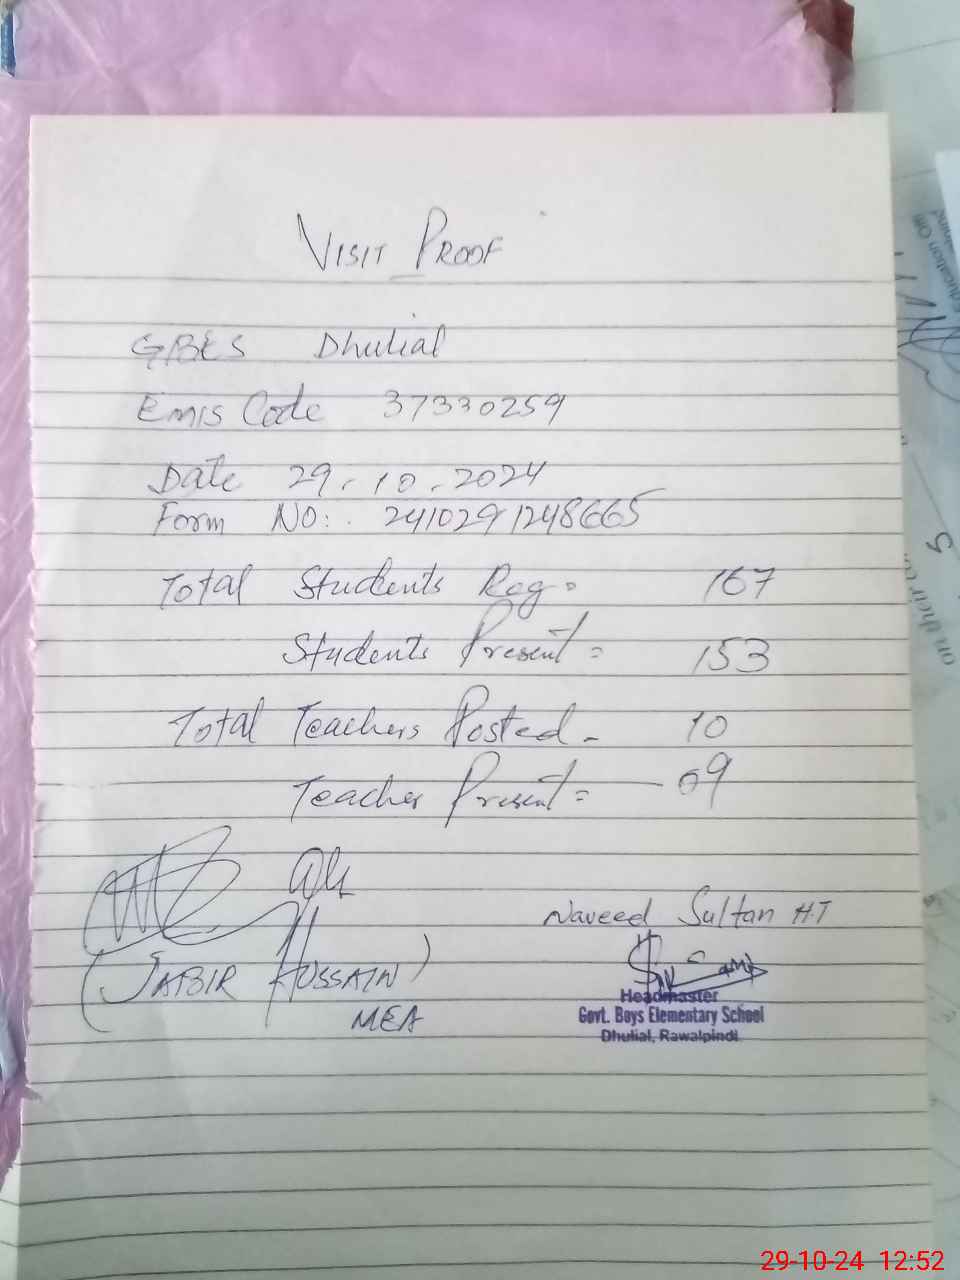 VISIT PROOF
GBES Dhulial
Emis Code 37330259
Date 29.10.2024
Form NO: 2410291248665
Total Students Reg = 167
Students Present = 153
Total Teachers Posted - 10
Teacher Present = 09
(JABIR HUSSAIN)
MEA
Naveed Sultan H.T
Headmaster
Govt. Boys Elementary School
Dhulial, Rawalpindi
ducation Off
on their
29-10-24 12:52